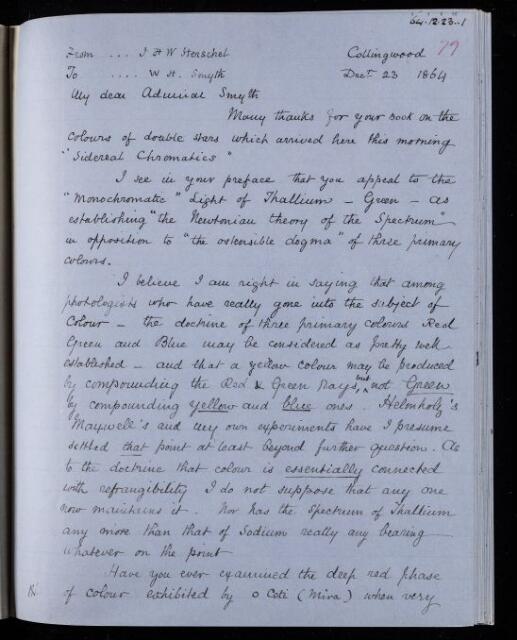 64.12.23..1
79
From ... J F W Herschel Collingwood
To .... W H. Smyth Decr. 23 1864
My dear Admiral Smyth
Many thanks for your book on the
Colours of double stars which arrived here this morning
"Sidereal Chromatics"
I see in your preface that you appeal to the
"Monochromatic" Light of Thallium – Green – as
establishing "the Newtonian theory of the Spectrum"
in opposition to "the ostensible dogma" of three primary
colours.
I believe I am right in saying that among
photologists who have really gone into the subject of
Colour – the doctrine of three primary colours Red
Green and Blue may be considered as pretty well
established – and that a yellow colour may be produced
by compounding the Red & Green rays, but not Green
by compounding yellow and blue ones. Helmholz's
Maxwell's and my own experiments have I presume
settled that point at least beyond further question. As
to the doctrine that colour is essentially connected
with refrangibility I do not suppose that any one
now maintains it. Nor has the Spectrum of Thallium
any more than that of Sodium really any bearing
whatever on the point
Have you ever examined the deep red phase
of colour exhibited by o Ceti (Mira) when very